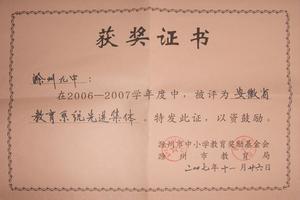 获奖证书
滁州九中：
在2006—2007学年度中，被评为安徽省
教育系统先进集体。特发此证，以资鼓励。
滁州市中小学教育奖励基金会
滁州市教育局
二〇〇七年十一月廿六日